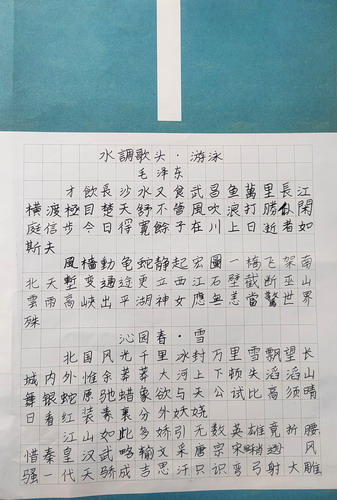 水調歌头·游泳
毛泽东
才飲長沙水又食武昌鱼萬里長江
横渡極目楚天舒不管風吹浪打勝似閑
庭信步今日得寬餘子在川上曰逝者如
斯夫
風樯動龟蛇静起宏圖一橋飞架南
北天塹变通途更立西江石壁截断巫山
雲雨高峡出平湖神女應無恙當驚世界
殊
沁园春·雪
北国风光千里冰封万里雪飘望长
城内外惟余莽莽大河上下顿失滔滔山
舞银蛇原驰蜡象欲与天公试比高须晴
日看红装素裹分外妖娆
江山如此多娇引无数英雄竞折腰
惜秦皇汉武略输文采唐宗宋稍逊风
骚一代天骄成吉思汗只识弯弓射大雕